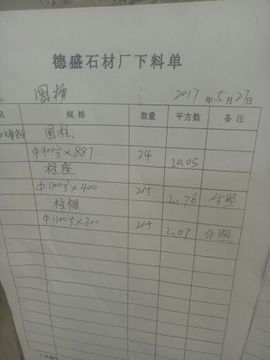 德盛石材厂下料单
圆柱 2017年5月27日
名 规格 数量 平方数 备注
圆柱
φ900×887 24 20.05
柱座
φ1100×400 2.76
柱帽
φ1100×300 2.07